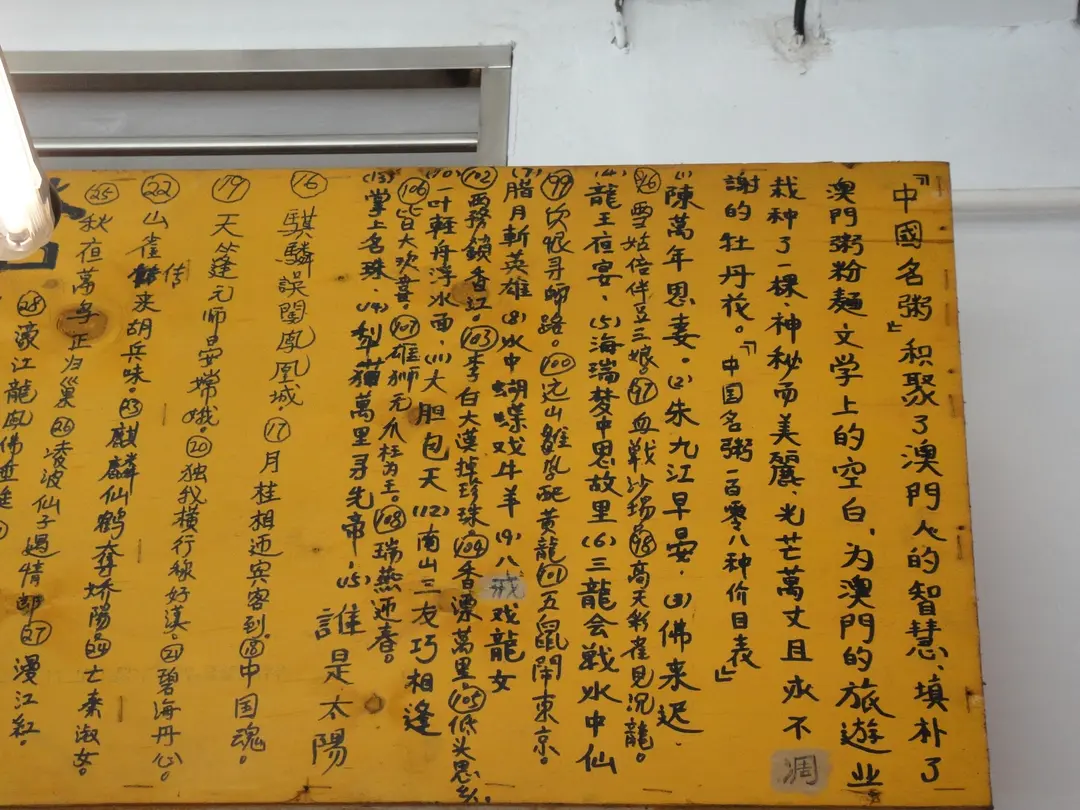 『中國名粥』积聚了澳門人的智慧、填朴了
澳門粥粉麵文学上的空白，为澳門的旅遊业
栽种了一棵、神秘而美麗、光芒萬丈且永不凋
謝的牡丹花。『中国名粥一百零八种价目表』
(1)陳萬年思妻。(2)朱九江早晏.(3)佛来迟.
96雪姑倍伴豆三娘。97血戦沙場98高天彩雀見沉龍。
(4)龍王夜宴、(5)海瑞梦中思故里(6)三龍会戦水中仙
99 寻師路。100远山雛凤配黄龍101五鼠闹東京。
(7)腊月斬英雄(8)水中蝴蝶戏牛羊(9)八戒戏龍女
102 鎖香江。103李白大漠掉珍珠。104香漂萬里。105低头思
(10)一叶軽舟浮水面、(11)大胆包天(12)南山三友巧相逢
106皆大欢喜。107雄狮元爪枉为王。108瑞燕迎春。
(13)掌上名珠、(14) 萬里寻先帝、(15)誰是太陽
16騏驎誤闖鳳凰城.17月桂相迊宾客到.18中国魂。
19天篷元师晏嫦娥。20独我横行線好漢。21碧海丹心。
22山雀传来胡兵味。23麒麟仙鹤奔嬌陽24亡秦淑女。
25秋夜萬鸟正归巢26凌波仙子遇情郎27漫江红。
28濠江龍凤佛